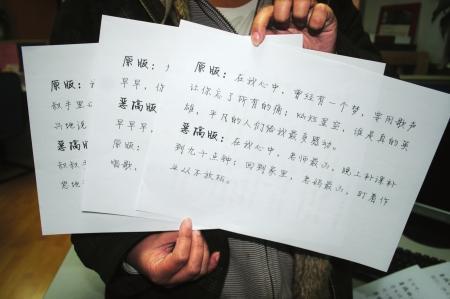 原版：在我心中，曾经有一个梦，要用歌声
让你忘了所有的痛；灿烂星空，谁是真的英
雄，平凡的人们给我最多感动。
恶搞版：在我心中，老师最凶，晚上补课补
到九十点钟；回到家里，老妈最凶，盯着作
业从不放松。
原版：
早早，你
恶搞版
早早早，
原版：
唱歌，
原版：
叔手里
恶搞版
叔叔手